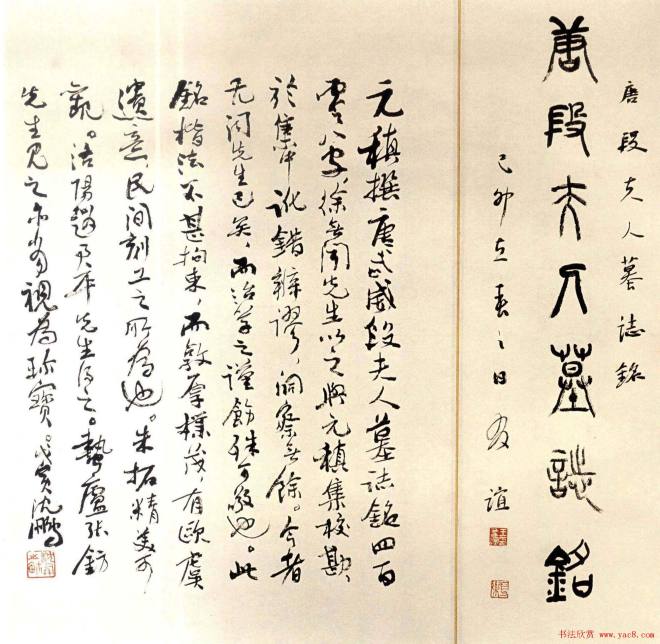 唐段夫人墓誌銘
唐段夫人墓誌銘
己卯立春之日友誼
元稹撰唐武威段夫人墓誌銘四百
零八字,徐無聞先生以之與元稹集校勘,
於集本訛錯辨謬,洞察無餘。今者
无闻先生已矣,而治学之谨饬殊可敬也。此
銘楷法不甚拘束,而敦厚樸茂,有歐虞
遺意,民間刻工之所為也。朱拓精美可
觀。洛陽趙君平先生得之。蟄廬張鈁
先生見之亦視為珍寶。戊寅沈鵬
书法欣赏 www.yac8.com